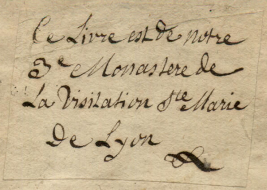 Ce Livre est de notre
3e Monastere de
La Visitation Ste Marie
De Lyon